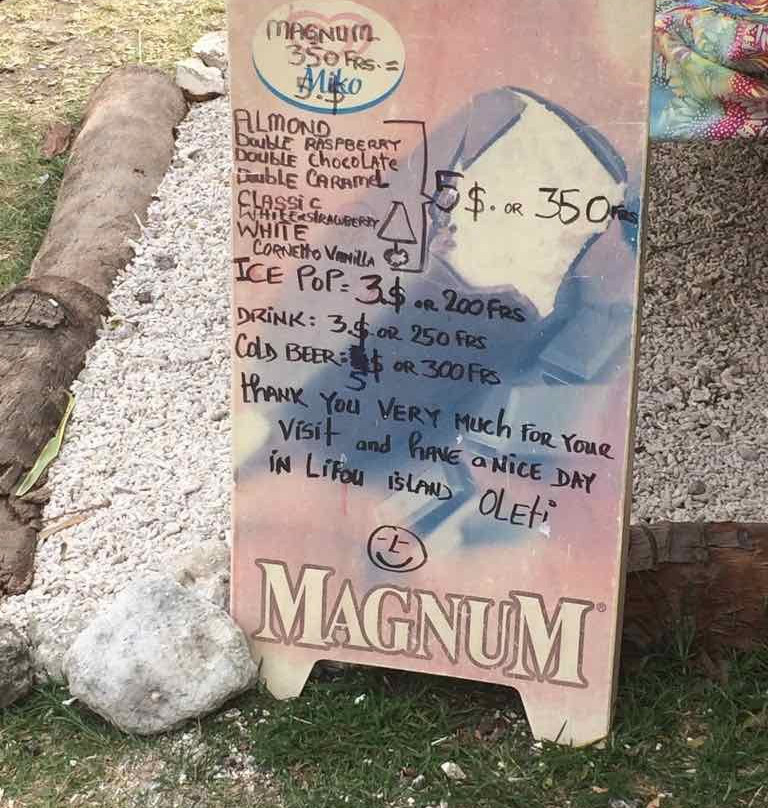 MAGNUM
350 FRS. =
Miko
5.$
ALMOND
DOUBLE RASPBERRY
DOUBLE CHOCOLATE
DOUBLE CARAMEL
CLASSIC
WHITE+STRAWBERRY
WHITE
CORNETTO VANILLA
5$. OR 350 FRS
ICE POP= 3$ OR 200 FRS
DRINK: 3.$ OR 250 FRS
COLD BEER: 5$ OR 300 FRS
THANK YOU VERY MUCH FOR YOUR
VISIT and HAVE a NICE DAY
IN LIFOU ISLAND OLETI
MAGNUM®